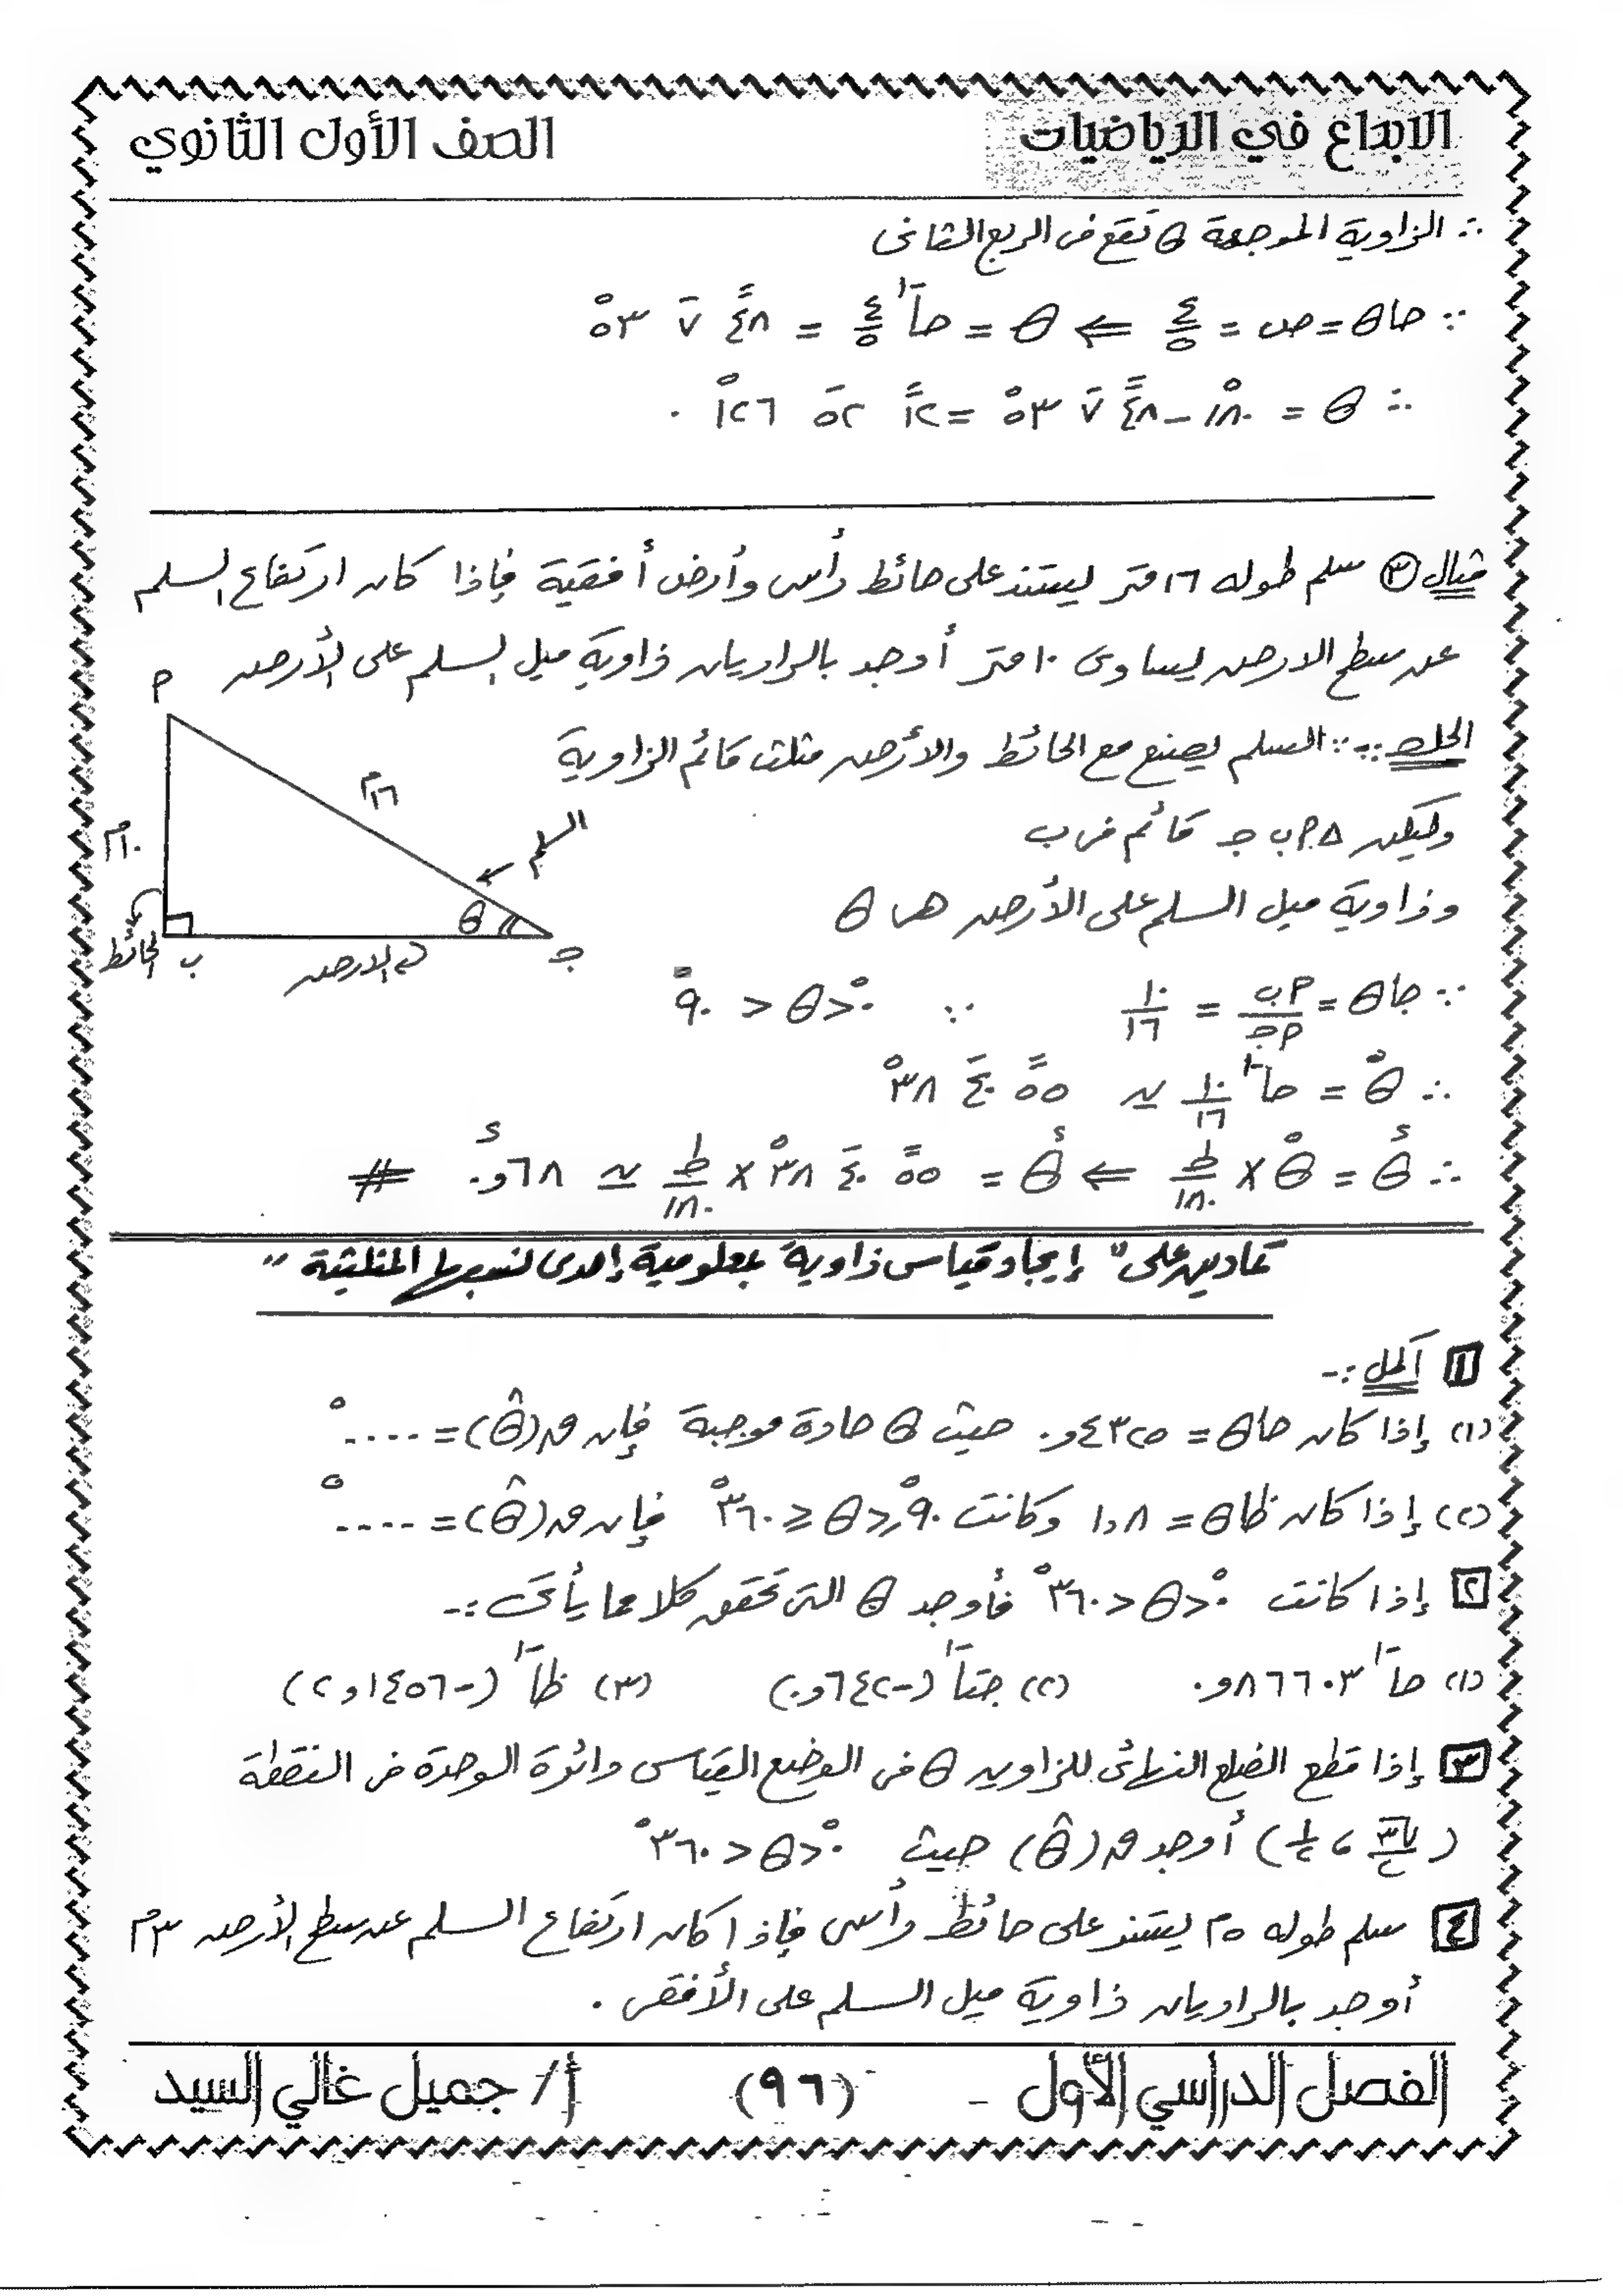 الابداع في الرياضيات
الصف الأول الثانوي
∴ الزاوية الموجهة θ تقع فى الربع الثانى
∵ حاθ = ص = ٤/٥ ⇐ θ = حا⁻¹ ٤/٥ = ٤٨ً ٧َ ٥٣°
∴ θ = ١٨٠° - ٤٨ً ٧َ ٥٣° = ١٢ً ٥٢َ ١٢٦° .
مثال ٣ سلم طوله ١٦ متر يستند على حائط رأسى وأرض أفقية فإذا كان ارتفاع السلم
عن سطح الارض يساوى ١٠ متر أوجد بالراديان زاوية ميل السلم على الأرض
الحل :- ∵ السلم يصنع مع الحائط والأرض مثلث قائم الزاوية
وليكن △ م ب جـ قائم فى ب
وزاوية ميل السلم على الأرض هى θ
م
١٦م
السلم
١٠م
θ
الحائط
ب
الارض
جـ
∵ جاθ = م ب/م جـ = ١٠/١٦ ∵ ٠° < θ < ٩٠°
∴ θ° = حا⁻¹ ١٠/١٦ ≃ ٥٥ً ٤٠َ ٣٨°
∴ θء = θ° × ط/١٨٠ ⇐ θء = ٥٥ً ٤٠َ ٣٨° × ط/١٨٠ ≃ ٠٫٦٨ء #
تمارين على " إيجاد قياس زاوية بمعلومية إحدى نسبها المثلثية "
١ أكمل :-
(١) إذا كان حاθ = ٠٫٤٣٢٥ حيث θ حادة موجبة فإن ق(θ̂) = ....°
(٢) إذا كان ظاθ = ١٫٨ وكانت ٩٠° ≤ θ ≤ ٣٦٠° فإن ق(θ̂) = ....°
٢ إذا كانت ٠° < θ < ٣٦٠° فأوجد θ التى تحقق كلا مما يأتى :-
(١) حا⁻¹ ٠٫٨٦٦٠٣ (٢) جتا⁻¹ (-٠٫٦٤٢) (٣) ظا⁻¹ (-٢٫١٤٥٦)
٣ إذا قطع الضلع النهائى للزاوية θ فى الوضع القياسى دائرة الوحدة فى النقطة
(√٣/٢ ، ١/٢) أوجد ق(θ̂) حيث ٠° < θ < ٣٦٠°
٤ سلم طوله ٥م يستند على حائط رأسى فإذا كان ارتفاع السلم عن سطح الأرض ٣م
أوجد بالراديان زاوية ميل السلم على الأفقى .
الفصل الدراسي الأول
(٩٦)
أ/ جميل غالي السيد